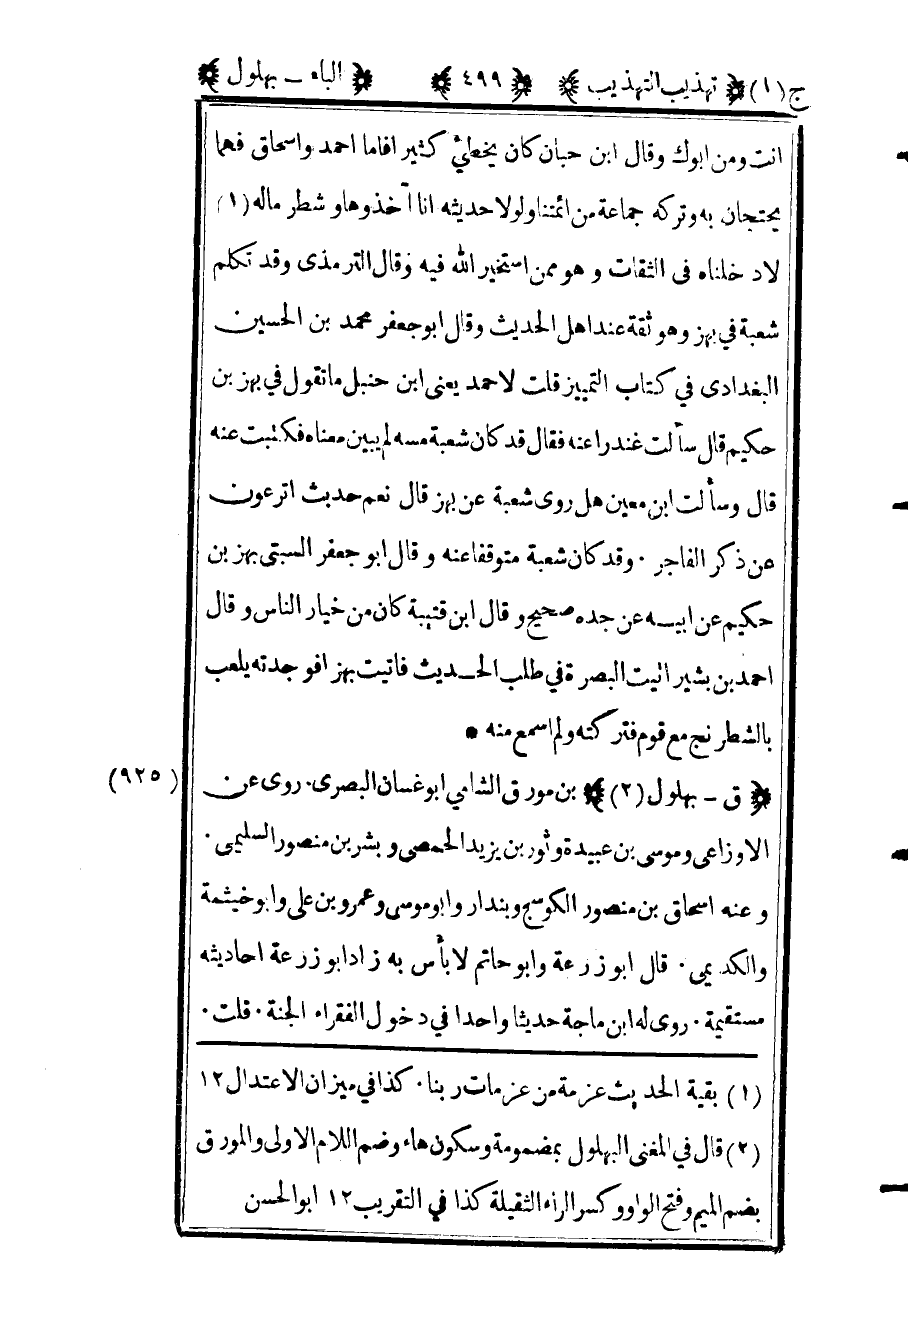 ج (١) ﴿ تهذيب التهذيب ﴾ ﴿ ٤٩٩ ﴾ ﴿ الباء ــ بهلول ﴾
انت ومن ابوك وقال ابن حبان كان يخطئ كثيرا فاما احمد واسحاق فهما
يحتجان به وتركه جماعة من ائمتنا ولولا حديثه انا آخذوها وشطر ماله (١)
لادخلناه فى الثقات وهو ممن استخير الله فيه وقال الترمذى وقد تكلم
شعبة في بهز وهو ثقة عند اهل الحديث وقال ابو جعفر محمد بن الحسين
البغدادى في كتاب التمييز قلت لاحمد يعنى ابن حنبل ماتقول في بهز بن
حكيم قال سألت غندرا عنه فقال قد كان شعبة مسه لم يبين معناه فكتبت عنه
قال وسألت ابن معين هل روى شعبة عن بهز قال نعم حديث اترعون
عن ذكر الفاجر · وقد كان شعبة متوقفا عنه وقال ابو جعفر السبتى بهز بن
حكيم عن ابيه عن جده صحيح وقال ابن قتيبة كان من خيار الناس وقال
احمد بن بشير اتيت البصرة في طلب الحديث فاتيت بهزا فوجدته يلعب
بالشطرنج مع قوم فتركته ولم اسمع منه •
﴿ ق – بهلول (٢) ﴾ بن مورق الشامي ابو غسان البصرى · روى عن (٩٢٥)
الاوزاعى وموسى بن عبيدة وثور بن يزيد الحمصى وبشر بن منصور السليمى ·
وعنه اسحاق بن منصور الكوسج وبندار وابو موسى وعمرو بن على وابو خيثمة
والكديمى · قال ابو زرعة وابو حاتم لا بأس به زاد ابو زرعة احاديثه
مستقيمة · روى له ابن ماجة حديثا واحدا في دخول الفقراء الجنة · قلت ·
(١) بقية الحديث عزمة من عزمات ربنا · كذا في ميزان الاعتدال ١٢
(٢) قال في المغنى البهلول بمضمومة وسكون هاء وضم اللام الاولى والمورق
بضم الميم وفتح الواو وكسر الراء الثقيلة كذا في التقريب ١٢ ابو الحسن